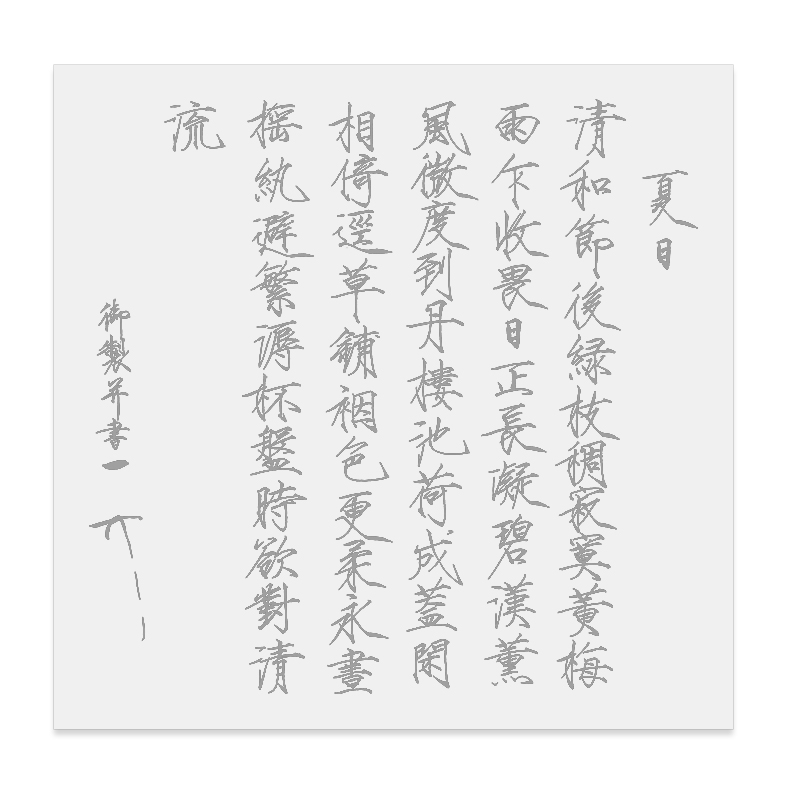 夏日
清和節後緑枝稠寂寞黃梅
雨乍收畏日正長凝碧漢薰
風微度到丹樓池荷成蓋閑
相倚逕草鋪裀色更柔永晝
摇紈避繁溽杯盤時欲對清
流
御製并書